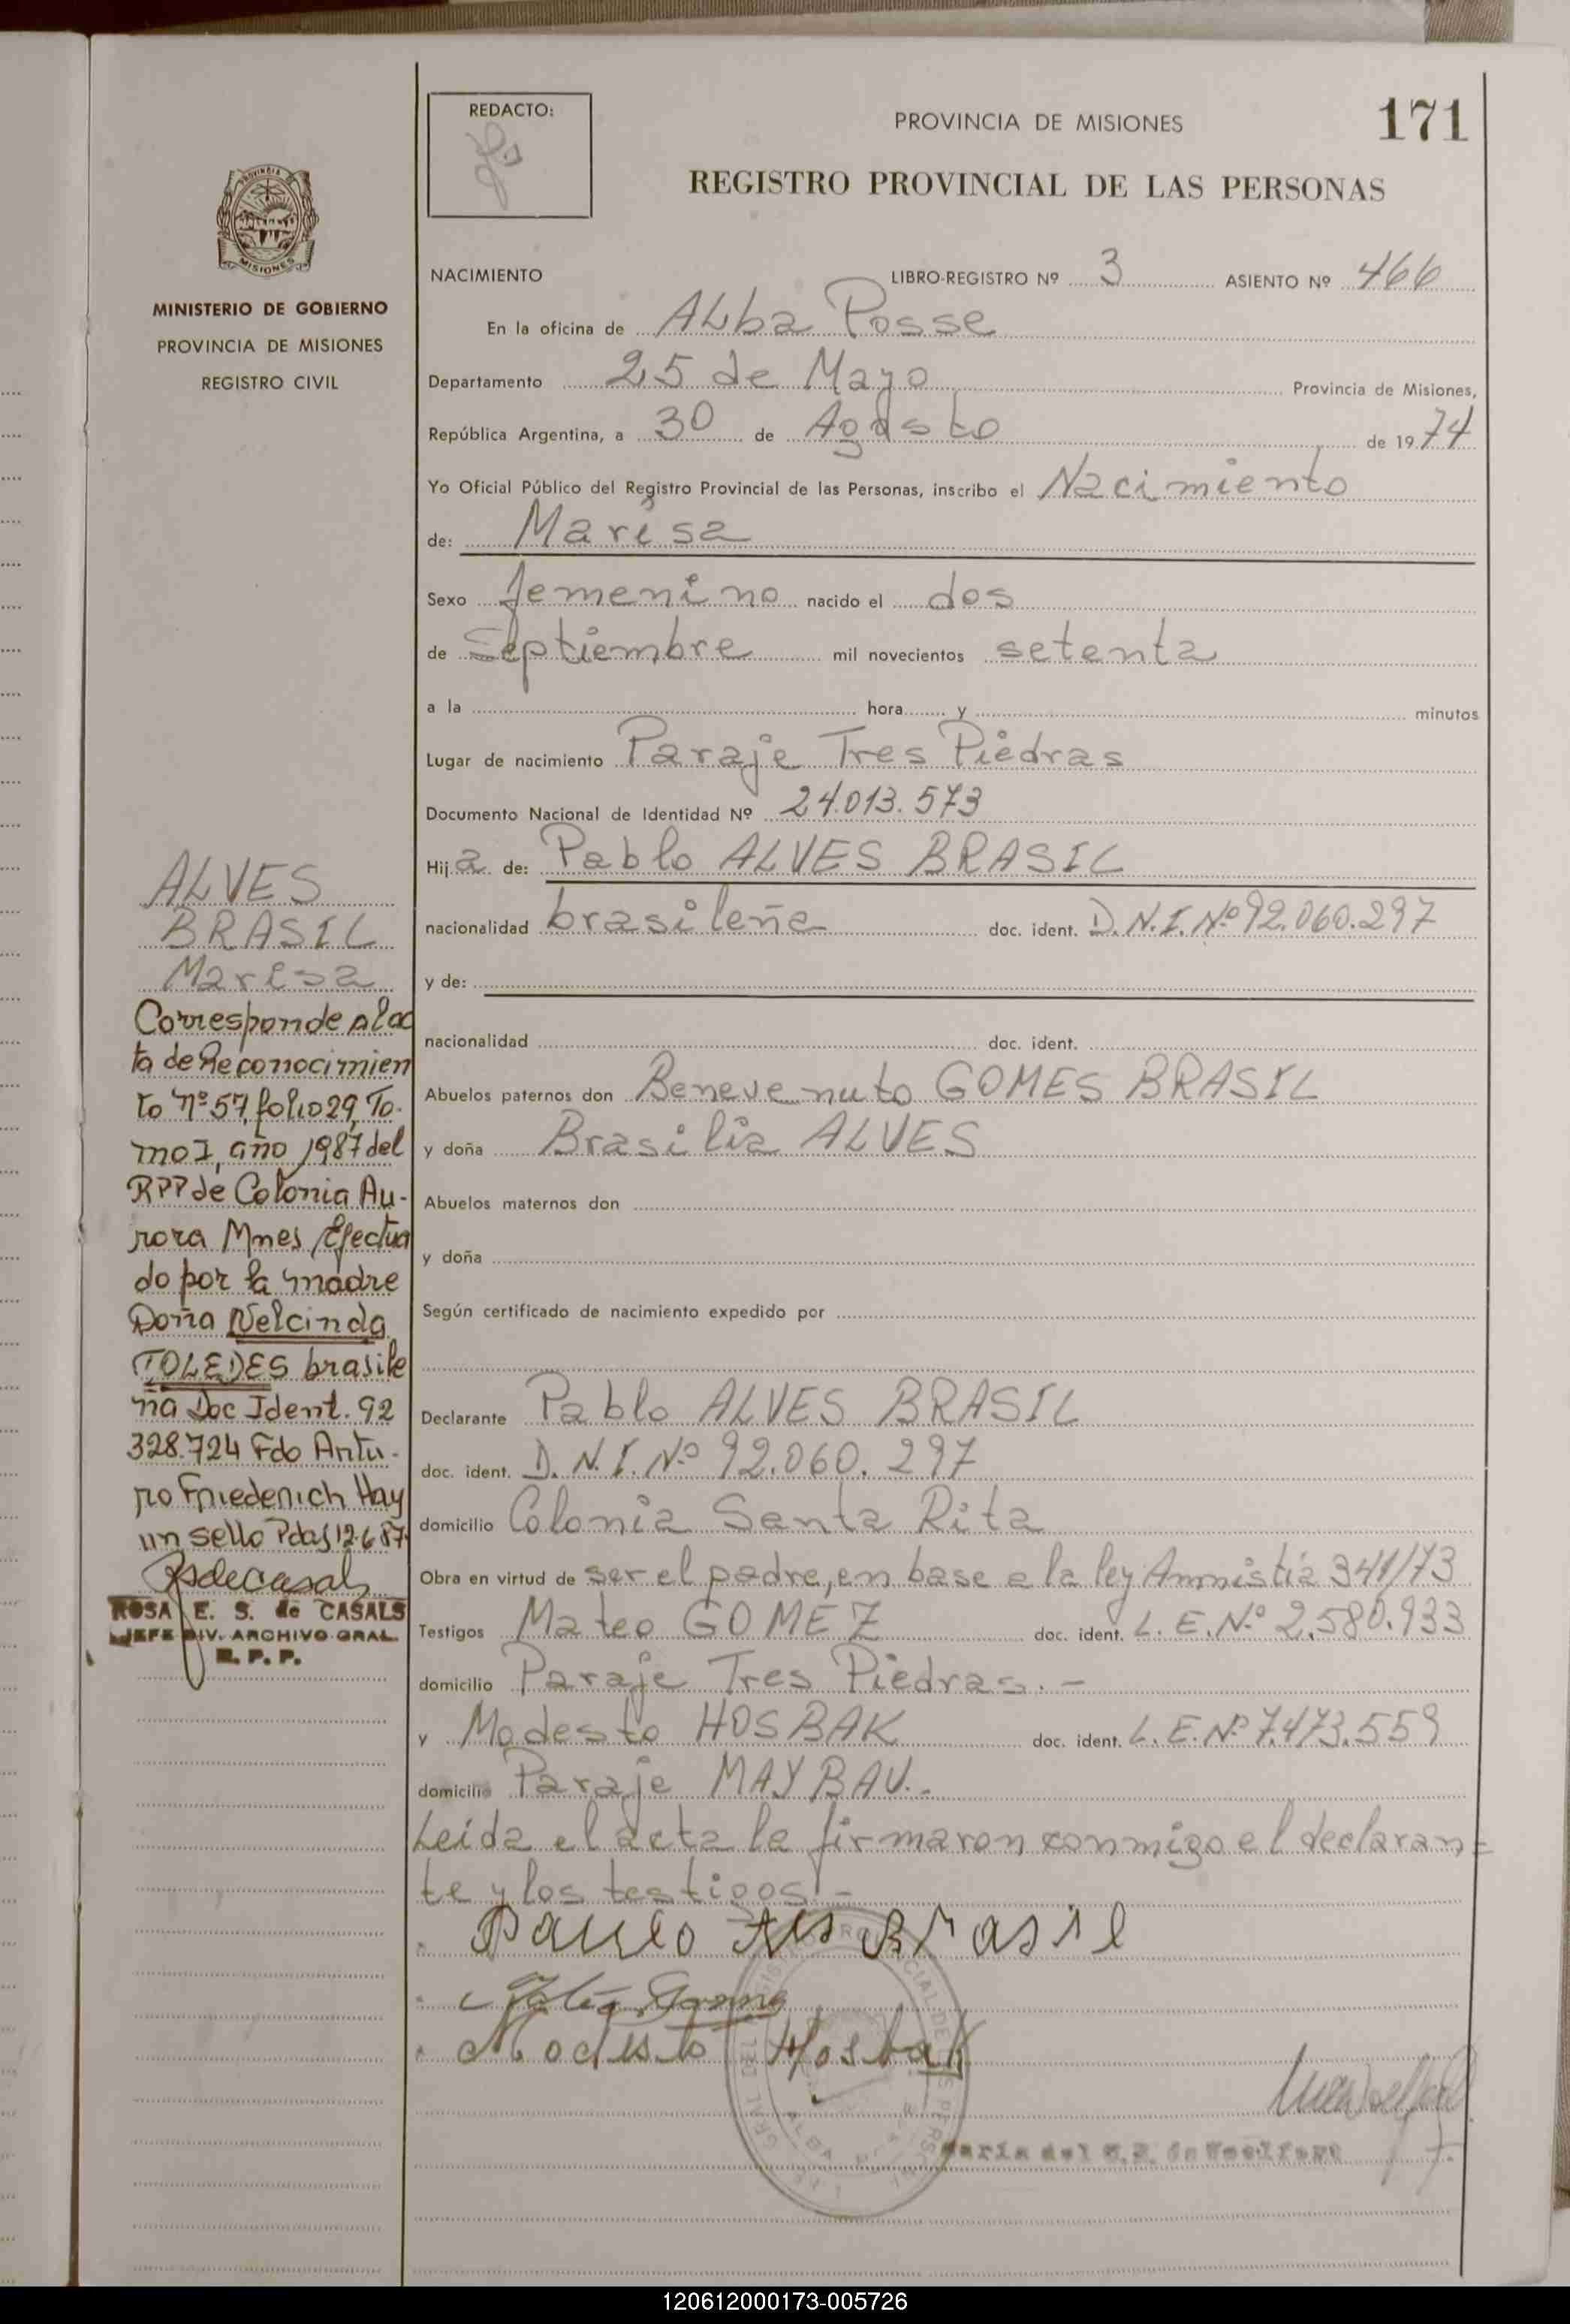 REDACTO:
PROVINCIA DE MISIONES
171
REGISTRO PROVINCIAL DE LAS PERSONAS
PROVINCIA DE
MISIONES
MINISTERIO DE GOBIERNO
PROVINCIA DE MISIONES
REGISTRO CIVIL
NACIMIENTO LIBRO-REGISTRO Nº 3 ASIENTO Nº 466
En la oficina de ALba Posse
Departamento 25 de Mayo Provincia de Misiones,
República Argentina, a 30 de Agosto de 1974
Yo Oficial Público del Registro Provincial de las Personas, inscribo el Nacimiento
de: Marisa
Sexo femenino nacido el dos
de Septiembre mil novecientos setenta
a la hora y minutos
Lugar de nacimiento Paraje Tres Piedras
Documento Nacional de Identidad Nº 24.013.573
Hija de: Pablo ALVES BRASIL
nacionalidad brasileña doc. ident. D.N.I.Nº 92.060.297
y de:
nacionalidad doc. ident.
Abuelos paternos don Benevenuto GOMES BRASIL
y doña Brasilia ALVES
Abuelos maternos don
y doña
Según certificado de nacimiento expedido por
Declarante Pablo ALVES BRASIL
doc. ident. D.N.I.Nº 92.060.297
domicilio Colonia Santa Rita
Obra en virtud de ser el padre, en base a la ley Amnistía 341/73
Testigos Mateo GOMEZ doc. ident. L.E.Nº 2.580.933
domicilio Paraje Tres Piedras.-
y Modesto HOSBAK doc. ident. L.E.Nº 7.473.559
domicilio Paraje MAYBAU.-
Leída el acta la firmaron conmigo el declaran=
te y los testigos.-
Paulo Als Brasil
Modesto Hosbak
María del de Woelfert
ALVES
BRASIL
Marisa
Corresponde al ac
ta de Reconocimien
to nº 57, folio 29, To-
mo I, año 1987 del
RPP de Colonia Au-
rora Mnes Efectua
do por la madre
Doña Nelcinda
TOLEDES brasile
ña Doc Ident. 92
328.724 Fdo Artu-
ro Friederich Hay
un sello Pdas 12-6-87.
Rsdecasals
ROSA E. S. de CASALS
JEFE DIV. ARCHIVO GRAL.
R. P. P.
120612000173-005726